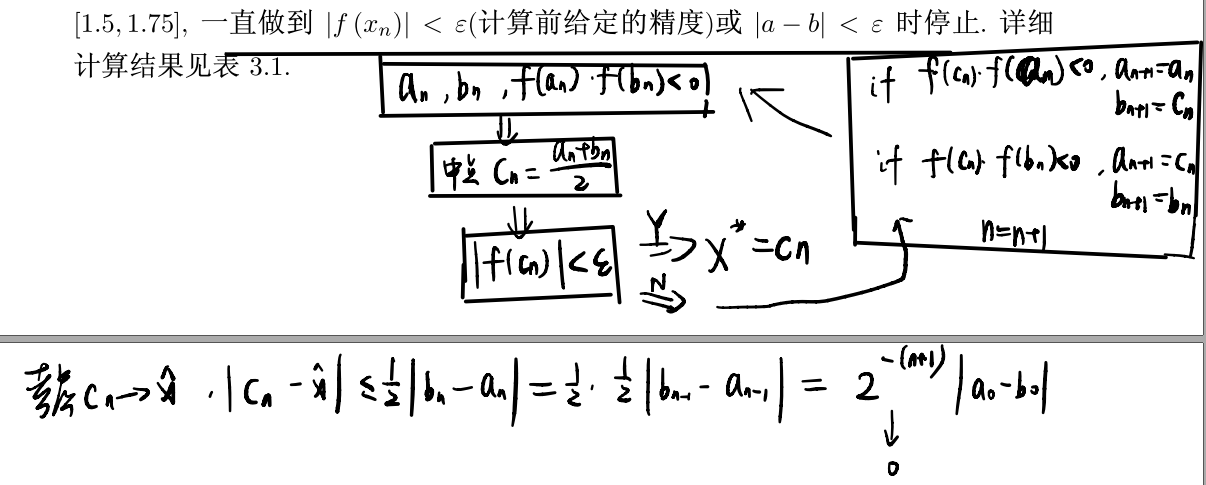 [1.5, 1.75], 一直做到 |f (xₙ)| < ε(计算前给定的精度)或 |a − b| < ε 时停止. 详细
计算结果见表 3.1.
aₙ , bₙ , f(aₙ)·f(bₙ)<0
中点 Cₙ = (aₙ+bₙ)/2
|f(cₙ)| < ε
Y ⇒ x* = cₙ
N ⇒
if f(cₙ)·f(aₙ)<0, aₙ₊₁=aₙ
bₙ₊₁=Cₙ
if f(cₙ)·f(bₙ)<0, aₙ₊₁=cₙ
bₙ₊₁=bₙ
n=n+1
cₙ→x̂ . |cₙ − x̂| ≤ ½|bₙ − aₙ| = ½·½|bₙ₋₁ − aₙ₋₁| = 2^-(n+1) |a₀−b₀|
↓
0